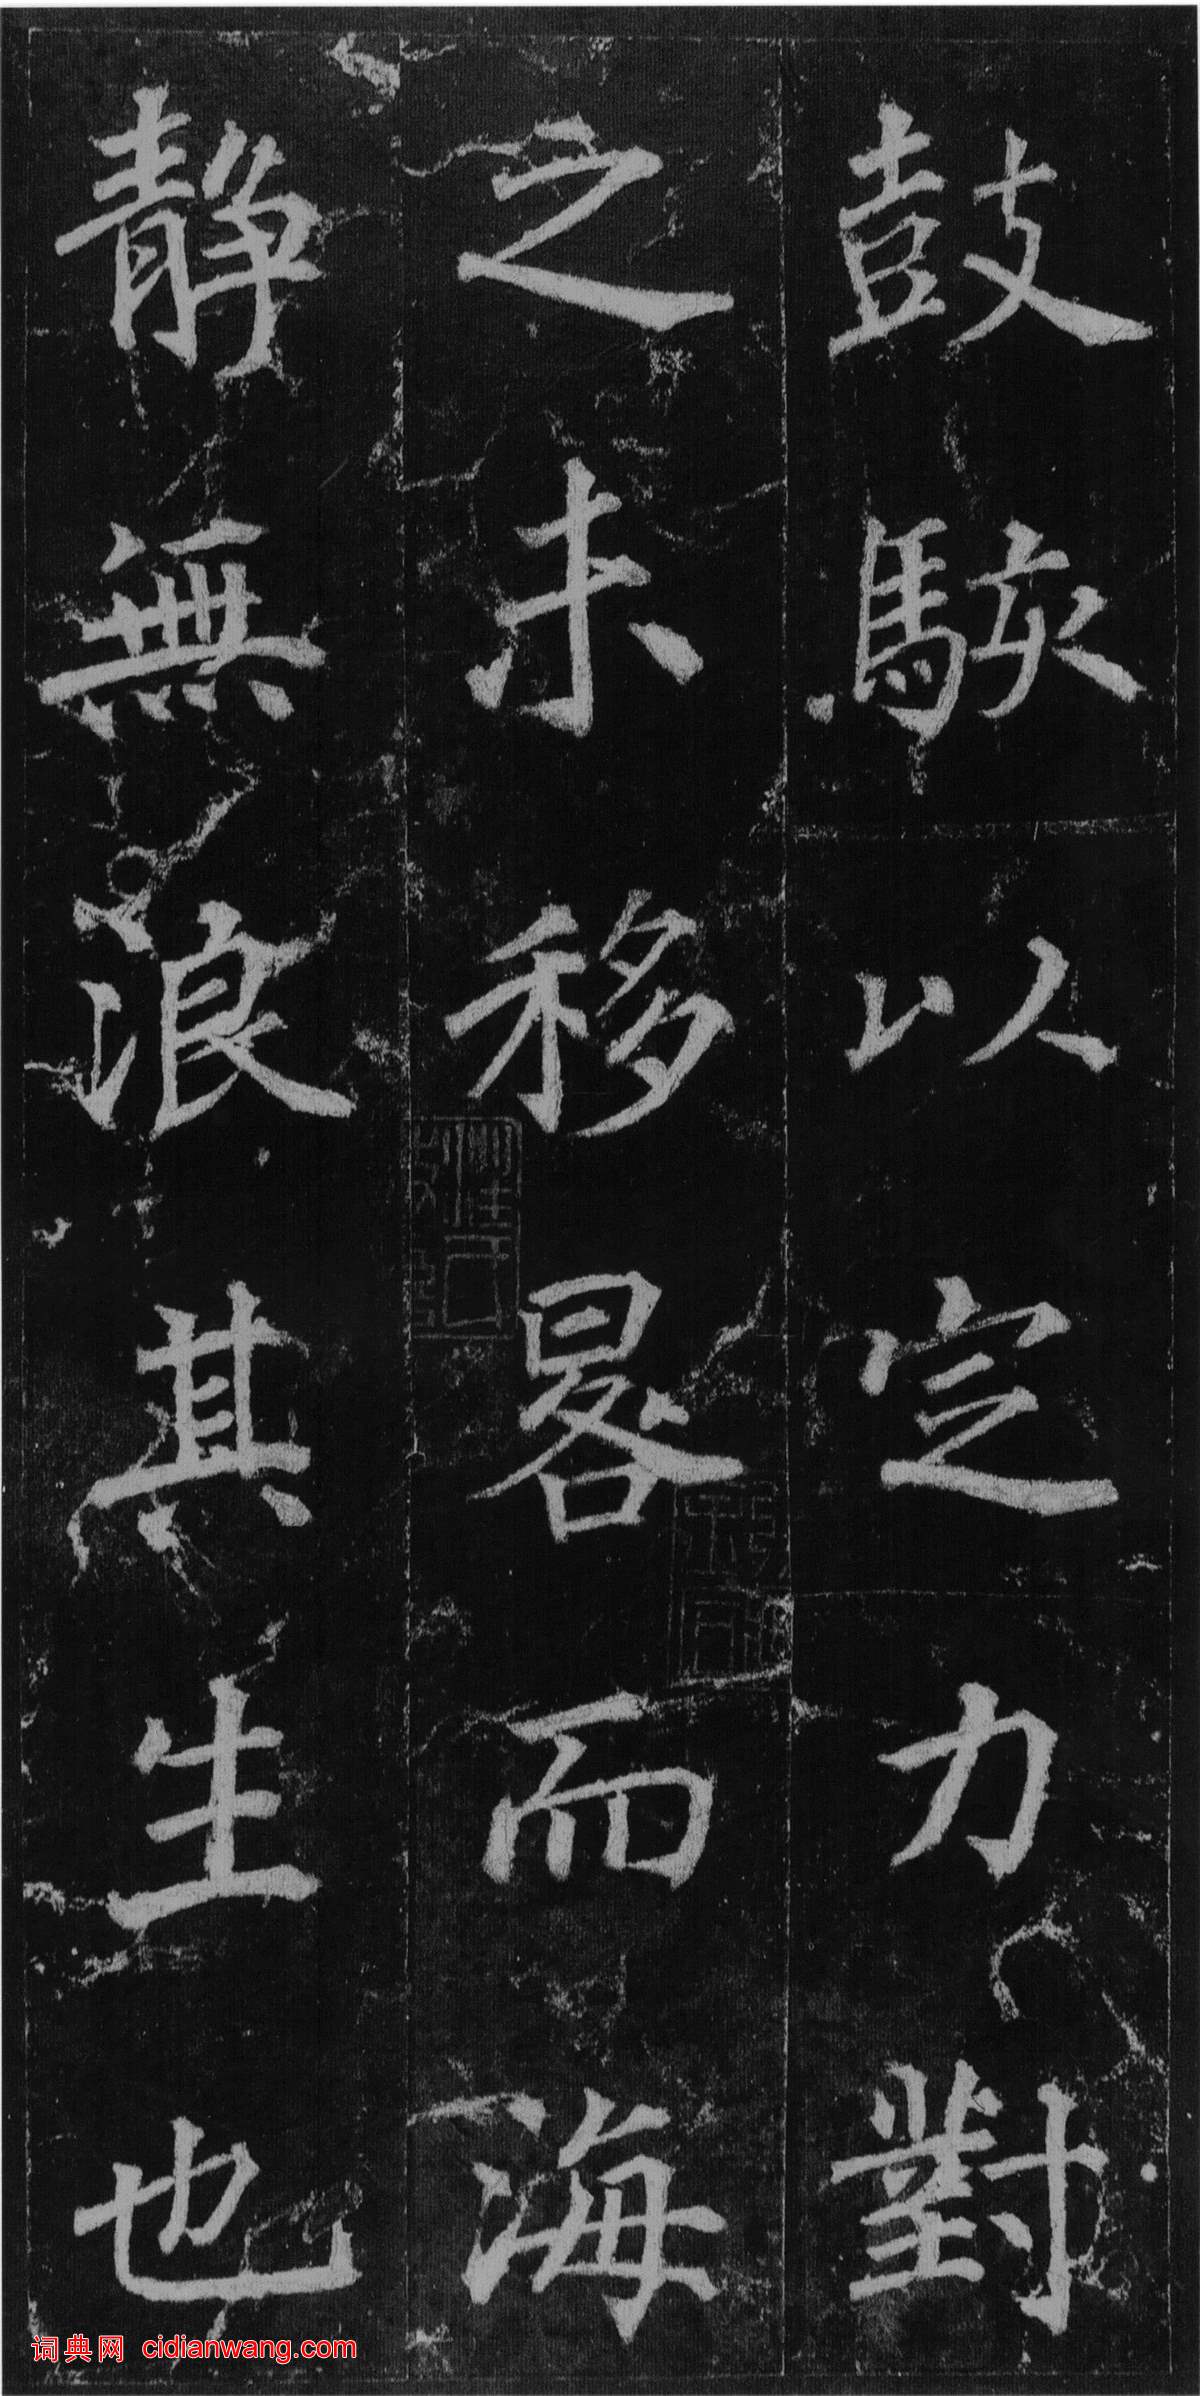 鼓駭以定力對
之未移晷而海
靜無浪其生也
词典网 cidianwang.com